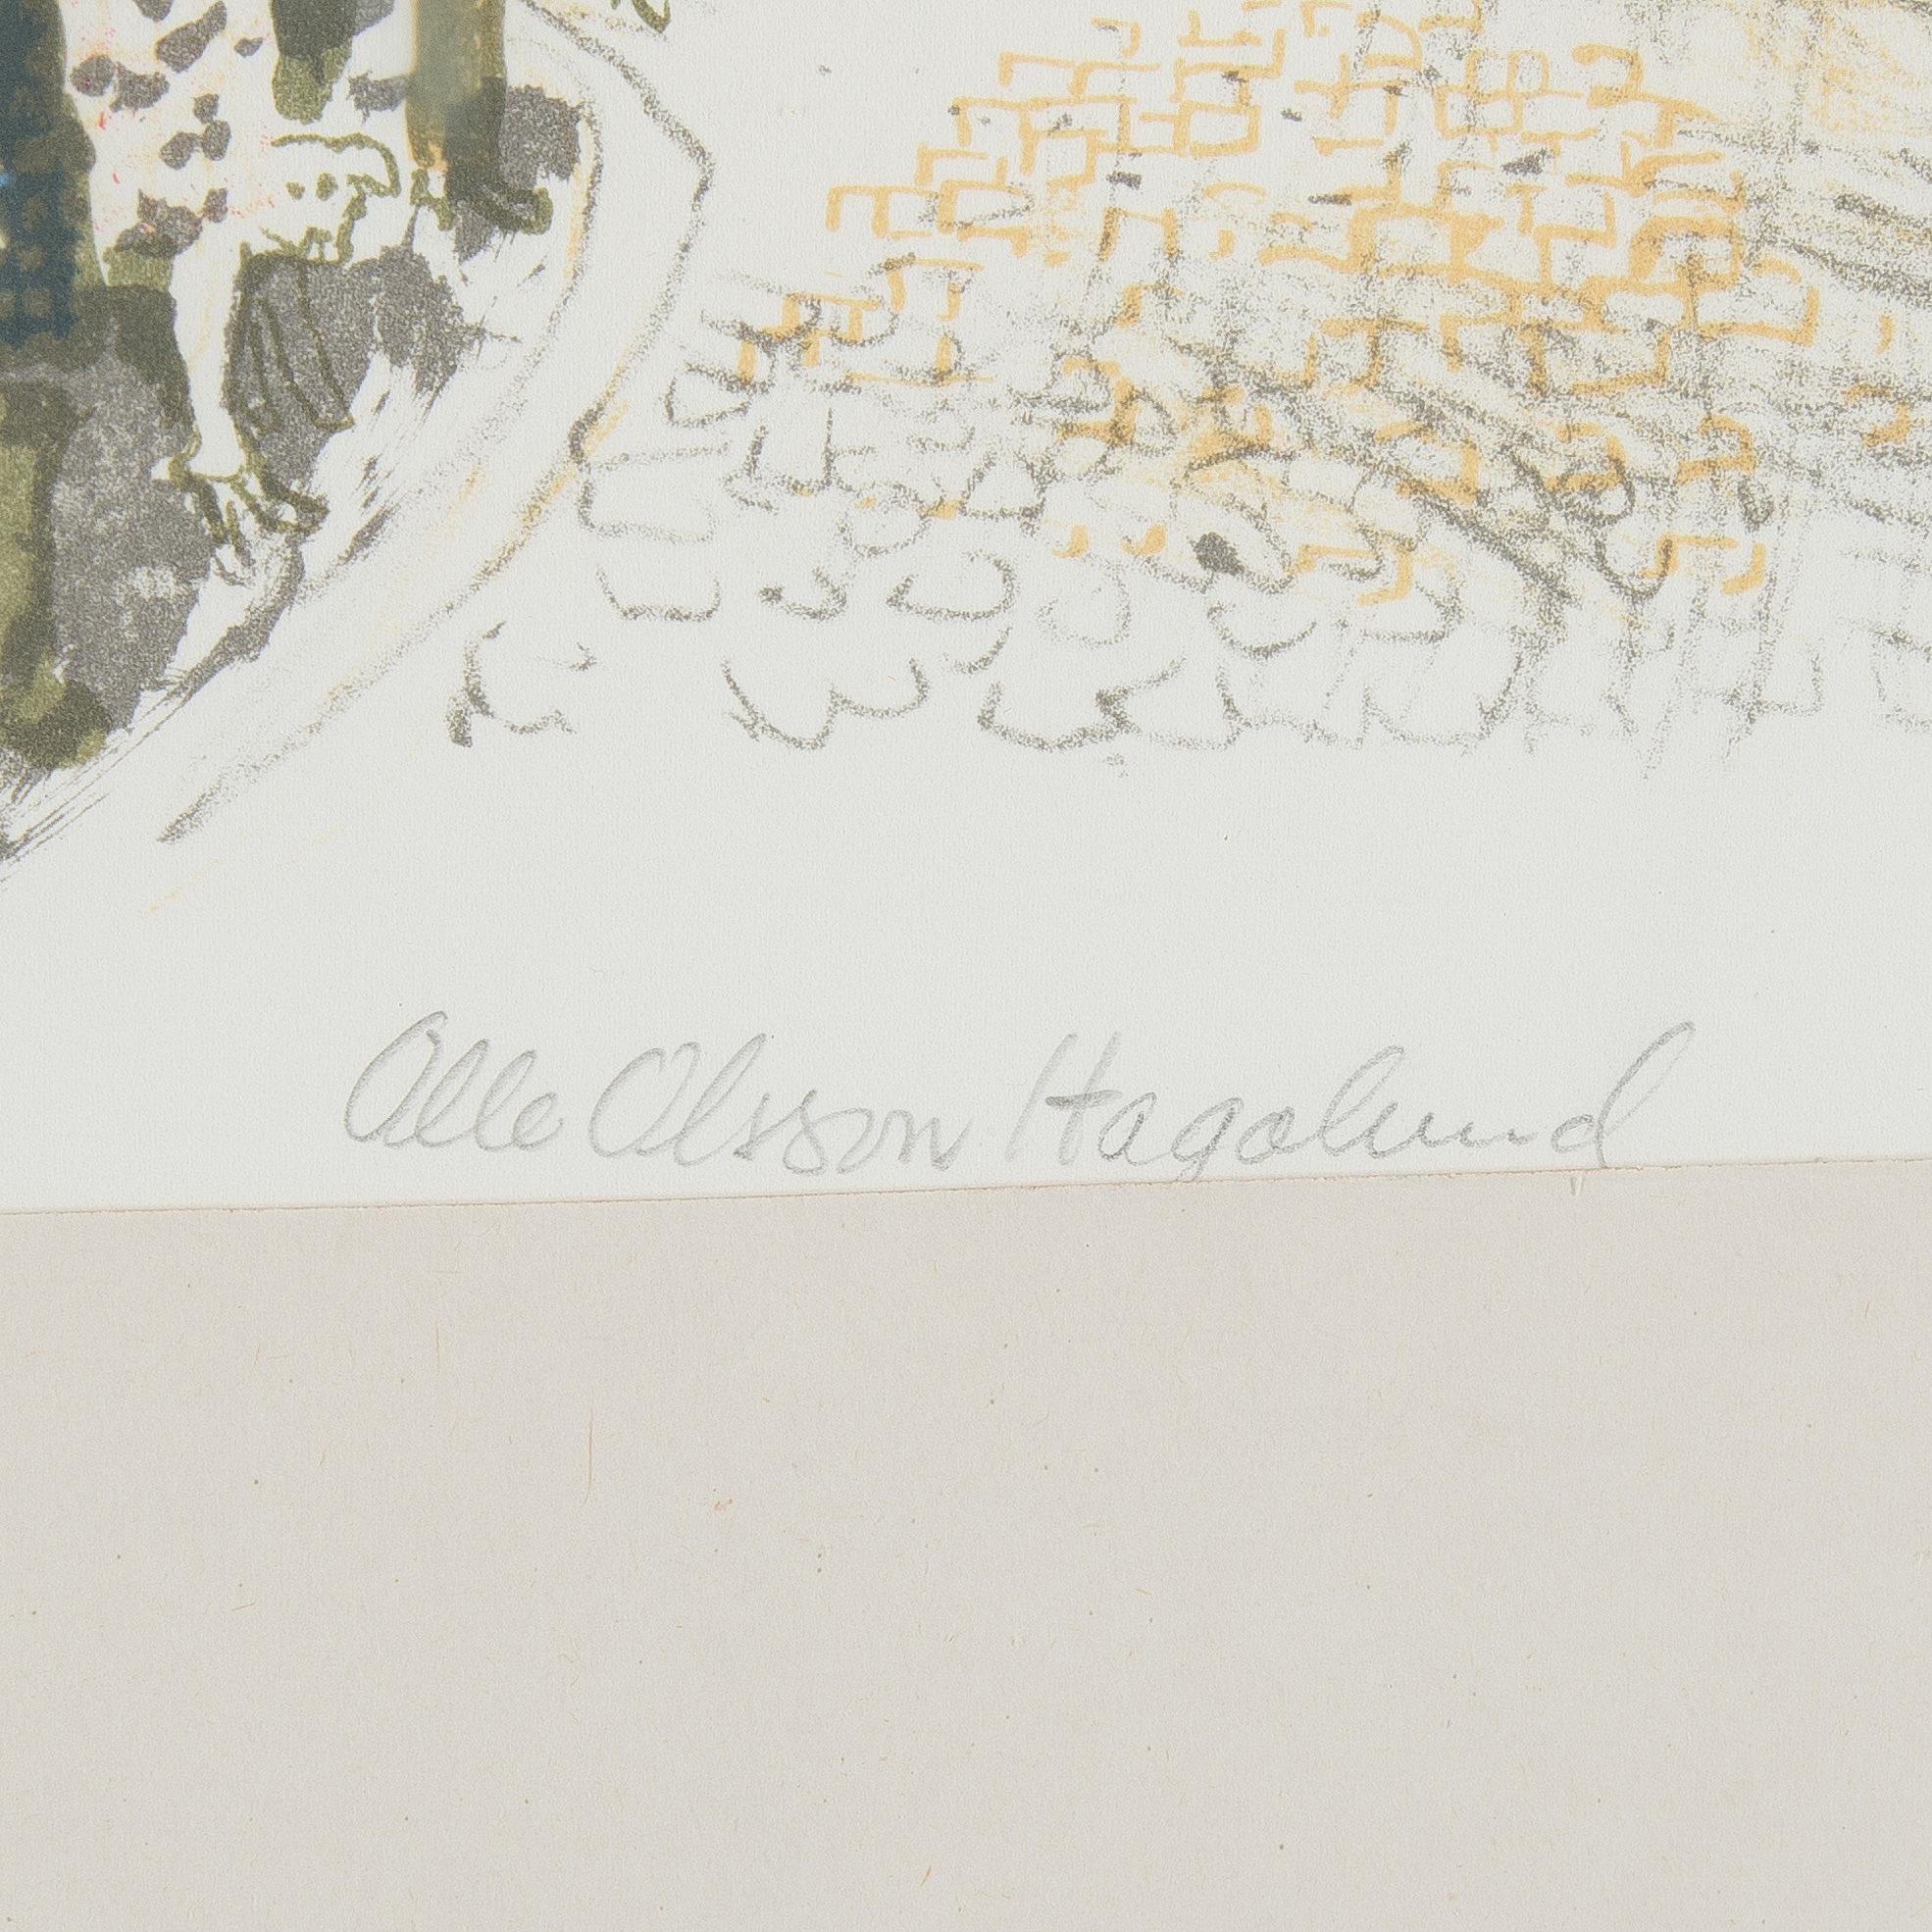 Olle Olsson Hagalund